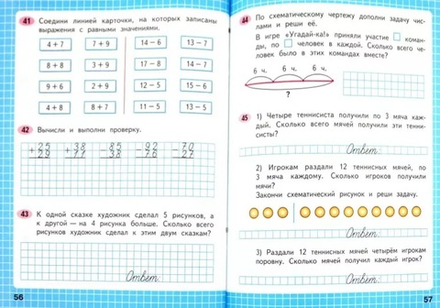 41 Соедини линией карточки, на которых записаны
выражения с равными значениями.
4 + 7 7 + 9 14 − 6 13 − 7
8 + 8 3 + 9 17 − 8 14 − 9
9 + 6 2 + 9 12 − 5 15 − 6
4 + 8 8 + 7 11 − 5 13 − 5
42 Вычисли и выполни проверку.
+25 +38 −85 −92 −70
29 77 38 76 27
43 К одной сказке художник сделал 5 рисунков, а
к другой — на 4 рисунка больше. Сколько всего
рисунков художник сделал к этим двум сказкам?
Ответ:
56
44 По схематическому чертежу дополни задачу чис-
лами и реши её.
В игре «Угадай-ка!» приняли участие коман-
ды, по человек в каждой. Сколько всего че-
ловек было в этих командах вместе?
6 ч. 6 ч. 6 ч.
?
45 1) Четыре теннисиста получили по 3 мяча каж-
дый. Сколько всего мячей получили эти тенни-
систы?
Ответ:
2) Игрокам раздали 12 теннисных мячей, по
3 мяча каждому. Сколько игроков получили
мячи?
Закончи схематический рисунок и реши задачу.
Ответ:
3) Раздали 12 теннисных мячей четырём игрокам
поровну. Сколько мячей получил каждый игрок?
Ответ:
57